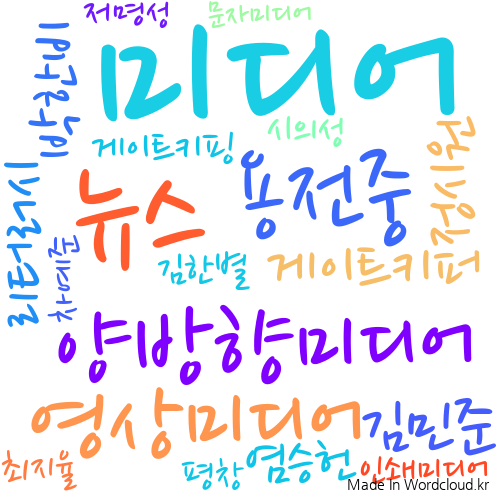 저명성
문자미디어
미디어
박한비
시의성
게이트키핑
정시원
용전중
뉴스
리터러시
차예준
김한별
게이트키퍼
양방향미디어
영상미디어
김민준
최지율
평창
염승헌
인쇄미디어
Made in Wordcloud.kr